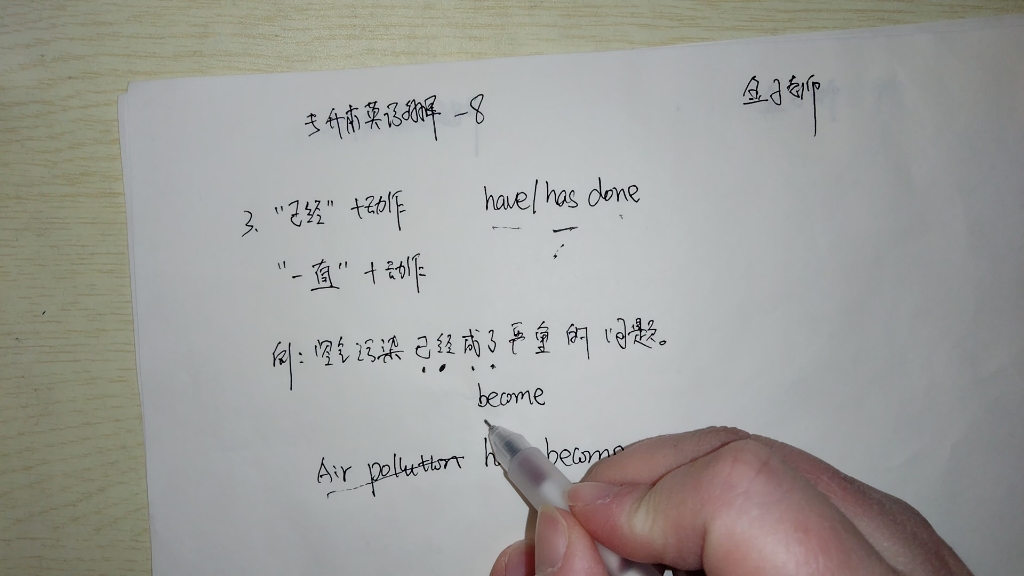 专升本英语翻译-8
金子老师
3、"已经"+动作 have/has done
"一直"+动作
例:空气污染已经成了严重的问题。
become
Air pollution become